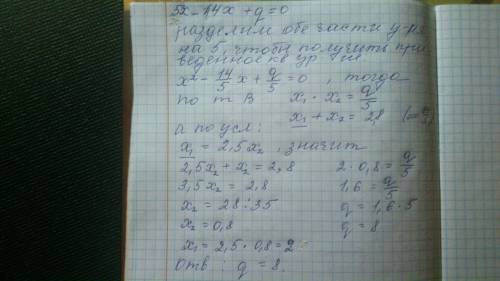 5x - 14x + q = 0
разделим обе части ур-я
на 5, чтобы получить при
веденное кв. ур-ие
x² - 14/5 x + q/5 = 0 , тогда
по т В x₁ · x₂ = q/5
x₁ + x₂ = 2,8
а по усл:
x₁ = 2,5x₂ , значит
2,5x₂ + x₂ = 2,8 2 · 0,8 = q/5
3,5x₂ = 2,8 1,6 = q/5
x₂ = 28 : 35 q = 1,6 · 5
x₂ = 0,8 q = 8
x₁ = 2,5 · 0,8 = 2
отв : q = 8.